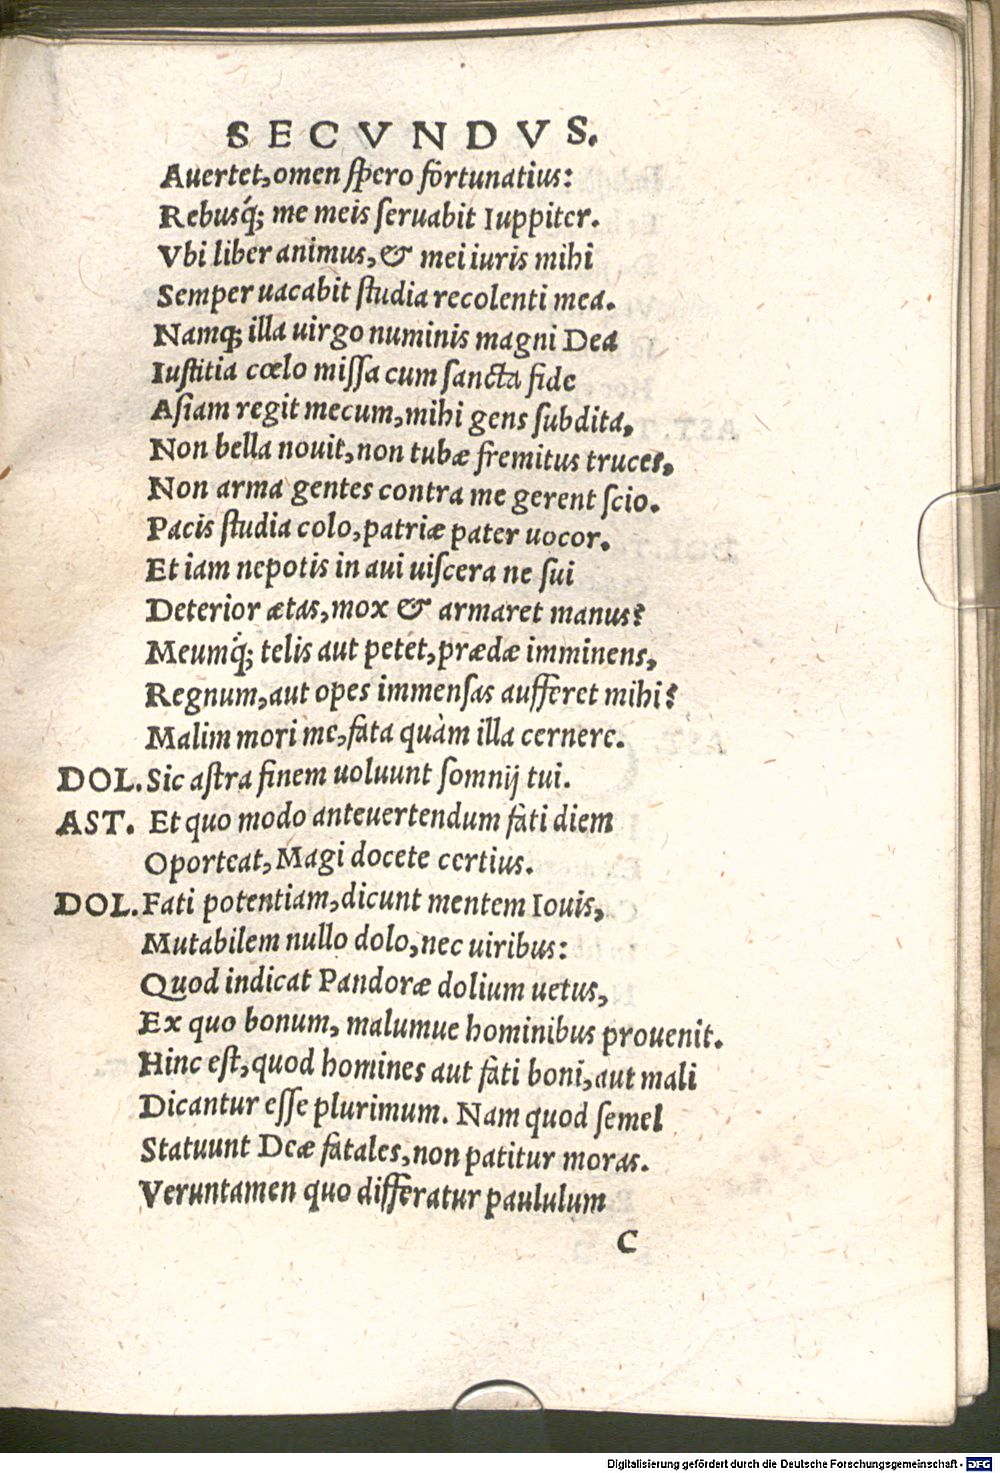 SECVNDVS.
Auertet, omen spero fortunatius:
Rebusq́; me meis seruabit Iuppiter.
Vbi liber animus, & mei iuris mihi
Semper uacabit studia recolenti mea.
Namq; illa uirgo numinis magni Dea
Iustitia cœlo missa cum sancta fide
Asiam regit mecum, mihi gens subdita,
Non bella nouit, non tubæ fremitus truces,
Non arma gentes contra me gerent scio.
Pacis studia colo, patriæ pater uocor.
Et iam nepotis in aui uiscera ne sui
Deterior ætas, mox & armaret manus?
Meumq́; telis aut petet, prædæ imminens,
Regnum, aut opes immensas aufferet mihi?
Malim mori me, fata quàm illa cernere.
DOL. Sic astra finem uoluunt somnij tui.
AST. Et quo modo anteuertendum fati diem
Oporteat, Magi docete certius.
DOL. Fati potentiam, dicunt mentem Iouis,
Mutabilem nullo dolo, nec uiribus:
Quod indicat Pandoræ dolium uetus,
Ex quo bonum, malumue hominibus prouenit.
Hinc est, quod homines aut fati boni, aut mali
Dicantur esse plurimum. Nam quod semel
Statuunt Deæ fatales, non patitur moras.
Veruntamen quo differatur paululum
C
Digitalisierung gefördert durch die Deutsche Forschungsgemeinschaft - DFG